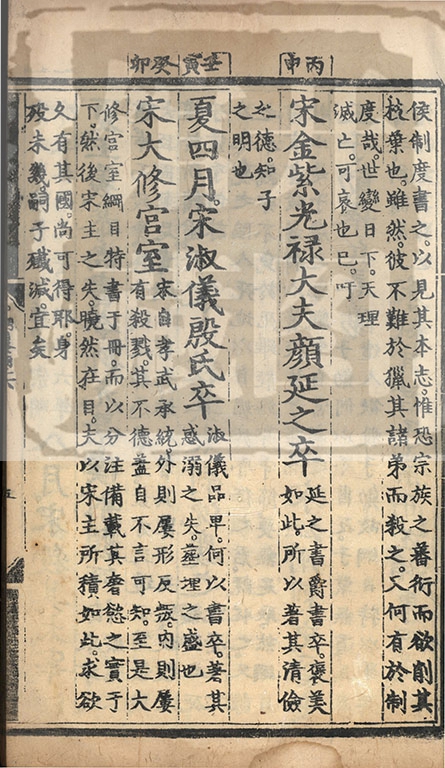 丙申
壬寅癸卯
侯制度書之以見其本志惟恐宗族之蕃衍而欲削其
枝葉也雖然彼不難於獵其諸弟而殺之又何有於制
度哉世變日下天理
滅亡可哀也已吁
宋金紫光祿大夫顏延之卒
延之書爵書卒褒美
如此所以著其清儉
之德知子
之明也
夏四月宋淑儀殷氏卒
淑儀品卑何以書卒著其
惑溺之失塟埋之盛也
宋大修宮室
宋自孝武承統外則屢形反叛內則屢
有殺戮其不德蓋自不言可知至是大
修宮室綱目特書于冊而以分注備載其奢慾之實于
下然後宋主之失曉然在目夫以宋主所積如此求欲
久有其國尚可得耶身
歿未幾嗣子殲滅宜矣